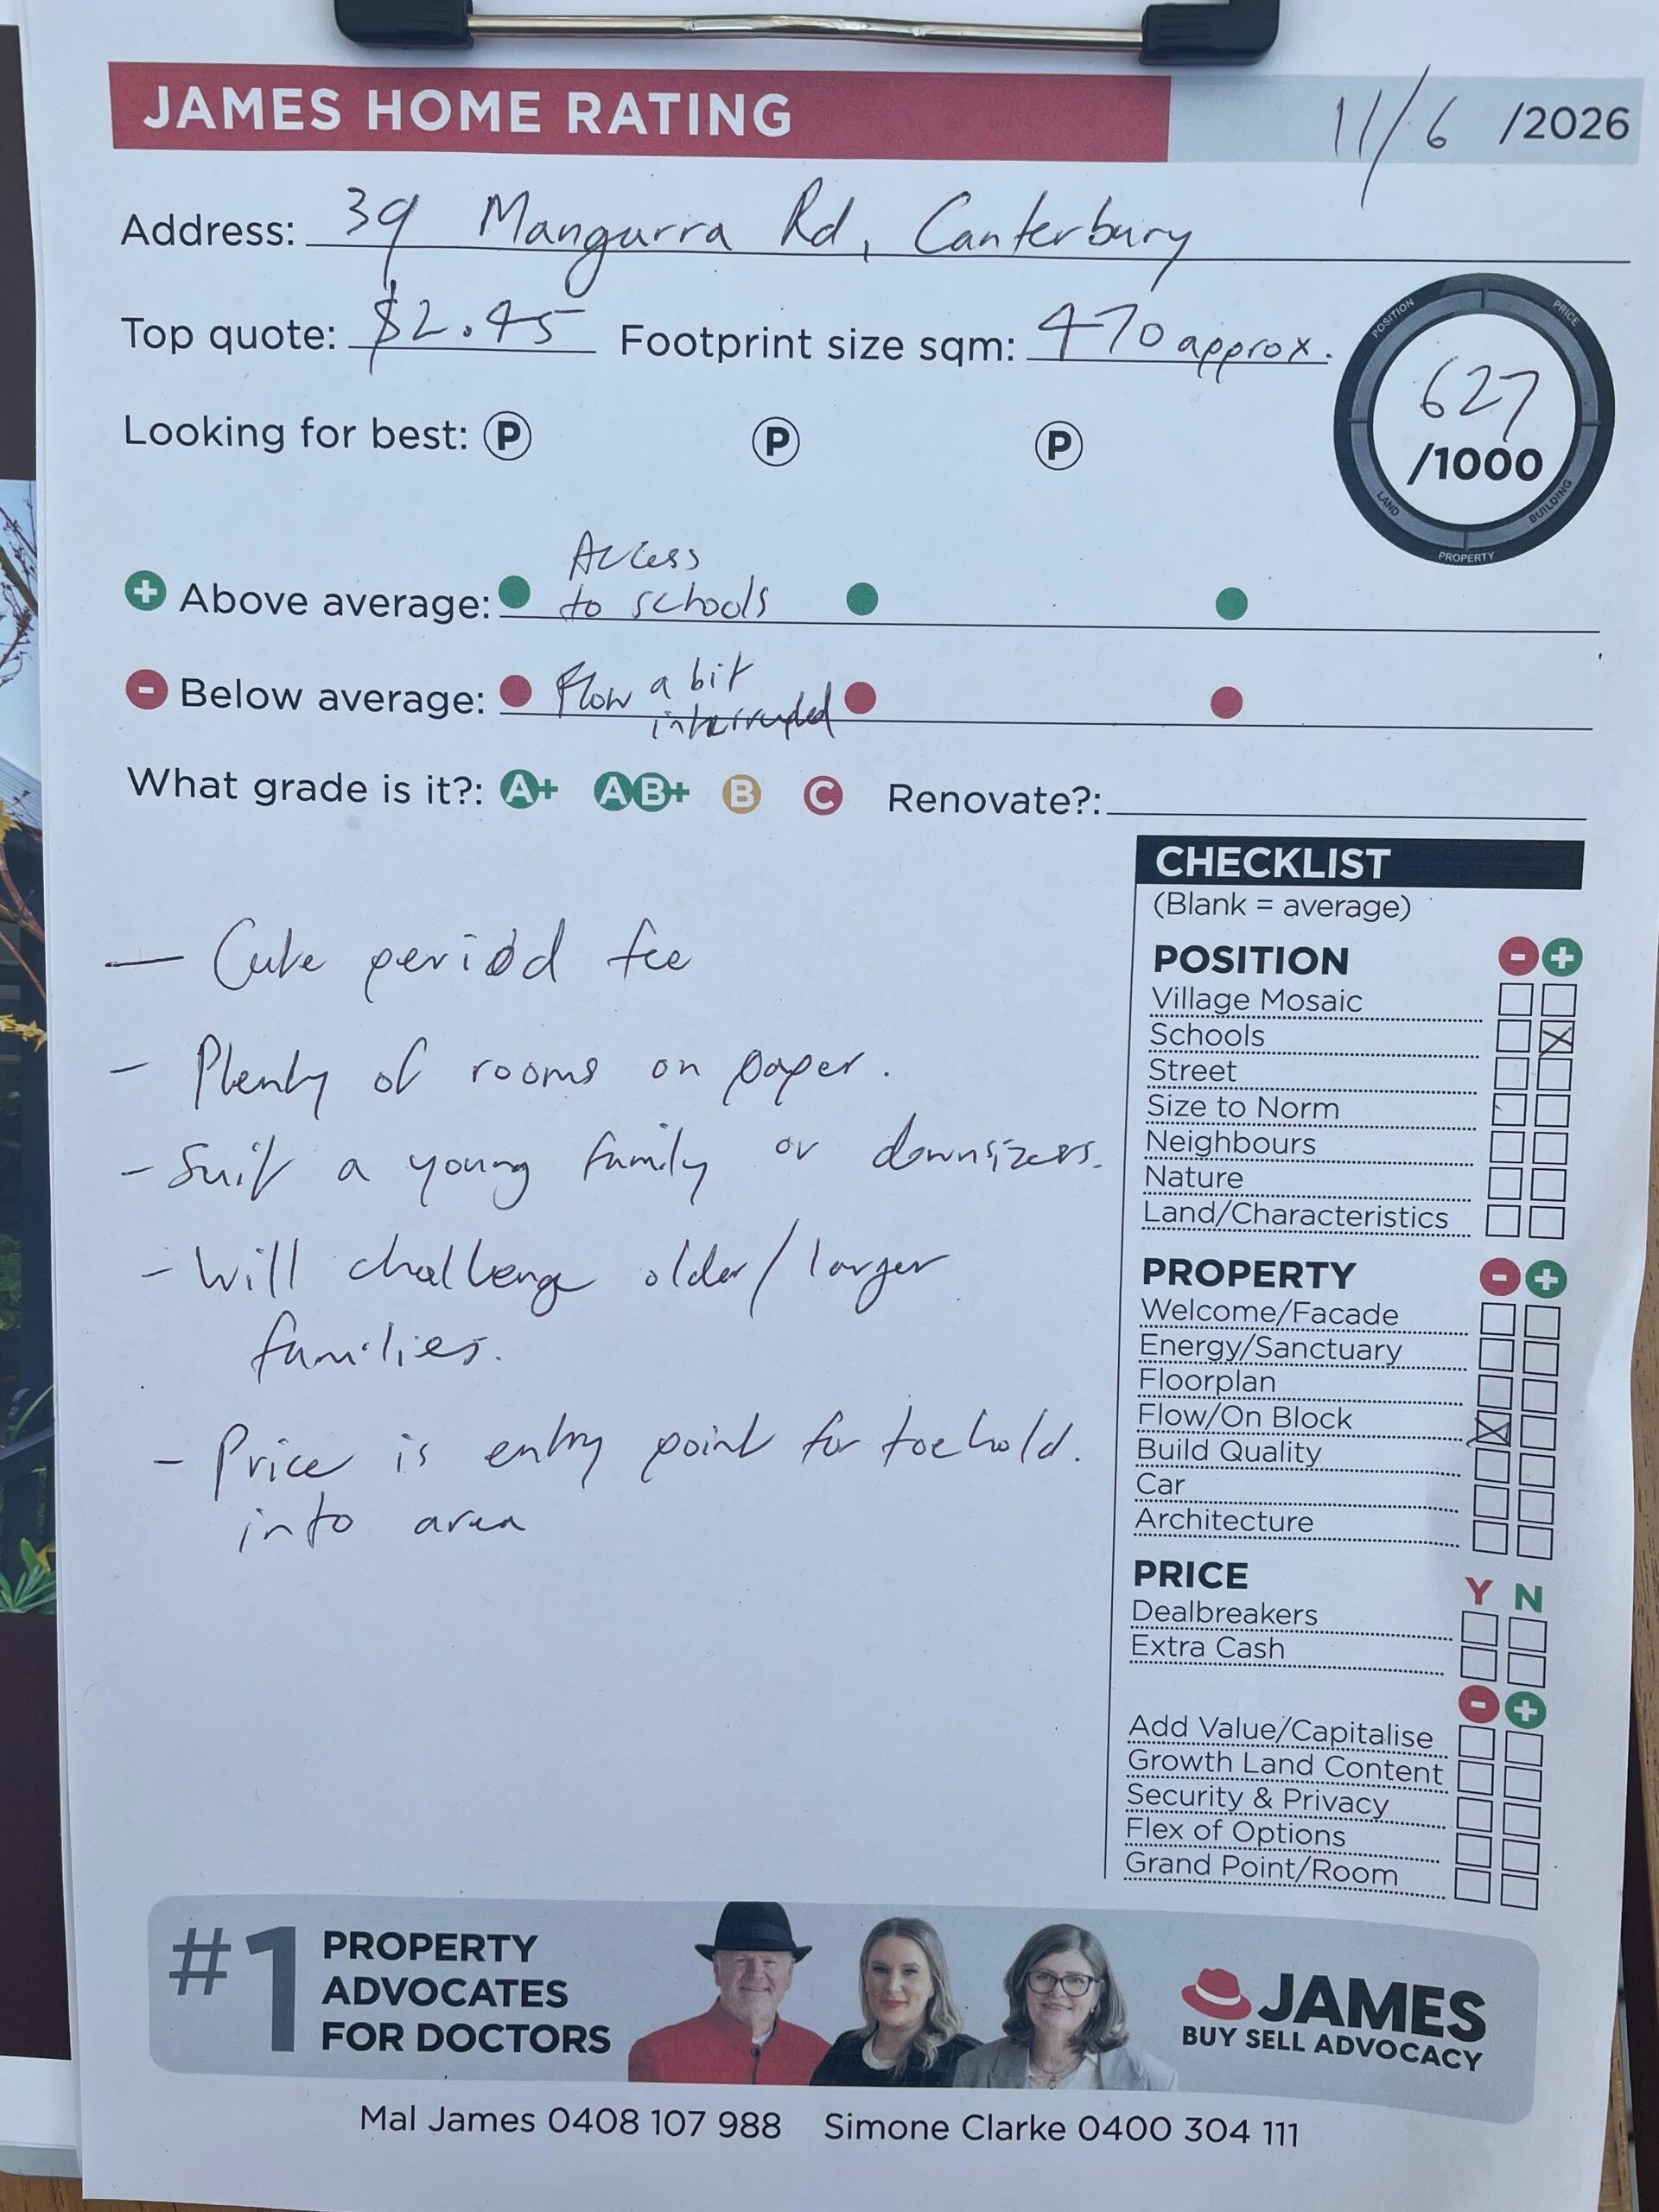 JAMES HOME RATING
11/6 /2026
Address: 39 Mangarra Rd, Canterbury
Top quote: $2.45 Footprint size sqm: 470 approx.
POSITION PRICE
627
/1000
LAND BUILDING
PROPERTY
Looking for best: P P P
Access
+ Above average: to schools
- Below average: Flow a bit
interrupted
What grade is it?: A+ AB+ B C Renovate?:
— Cute period fee
- Plenty of rooms on paper.
- Suit a young family or downsizers.
- Will challenge older/larger
families.
- Price is entry point for toehold.
into area
CHECKLIST
(Blank = average)
POSITION - +
Village Mosaic
Schools
Street
Size to Norm
Neighbours
Nature
Land/Characteristics
PROPERTY - +
Welcome/Facade
Energy/Sanctuary
Floorplan
Flow/On Block
Build Quality
Car
Architecture
PRICE Y N
Dealbreakers
Extra Cash
- +
Add Value/Capitalise
Growth Land Content
Security & Privacy
Flex of Options
Grand Point/Room
#1 PROPERTY
ADVOCATES
FOR DOCTORS
JAMES
BUY SELL ADVOCACY
Mal James 0408 107 988 Simone Clarke 0400 304 111